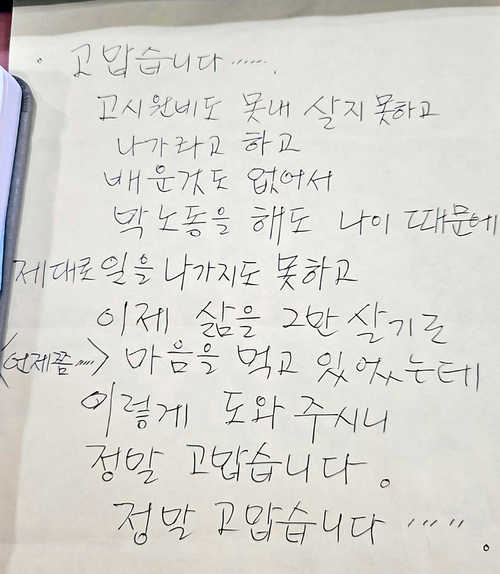 · 고맙습니다 ‥‥‥.
고시원비도 못내 살지 못하고
나가라고 하고
배운것도 없어서
막노동을 해도 나이 때문에
제대로일을 나가지도 못하고
이제 삶을 그만 살기로
<언제쯤‥‥> 마음을 먹고 있었는데
이렇게 도와 주시니
정말 고맙습니다.
정말 고맙습니다 ‥‥‥.